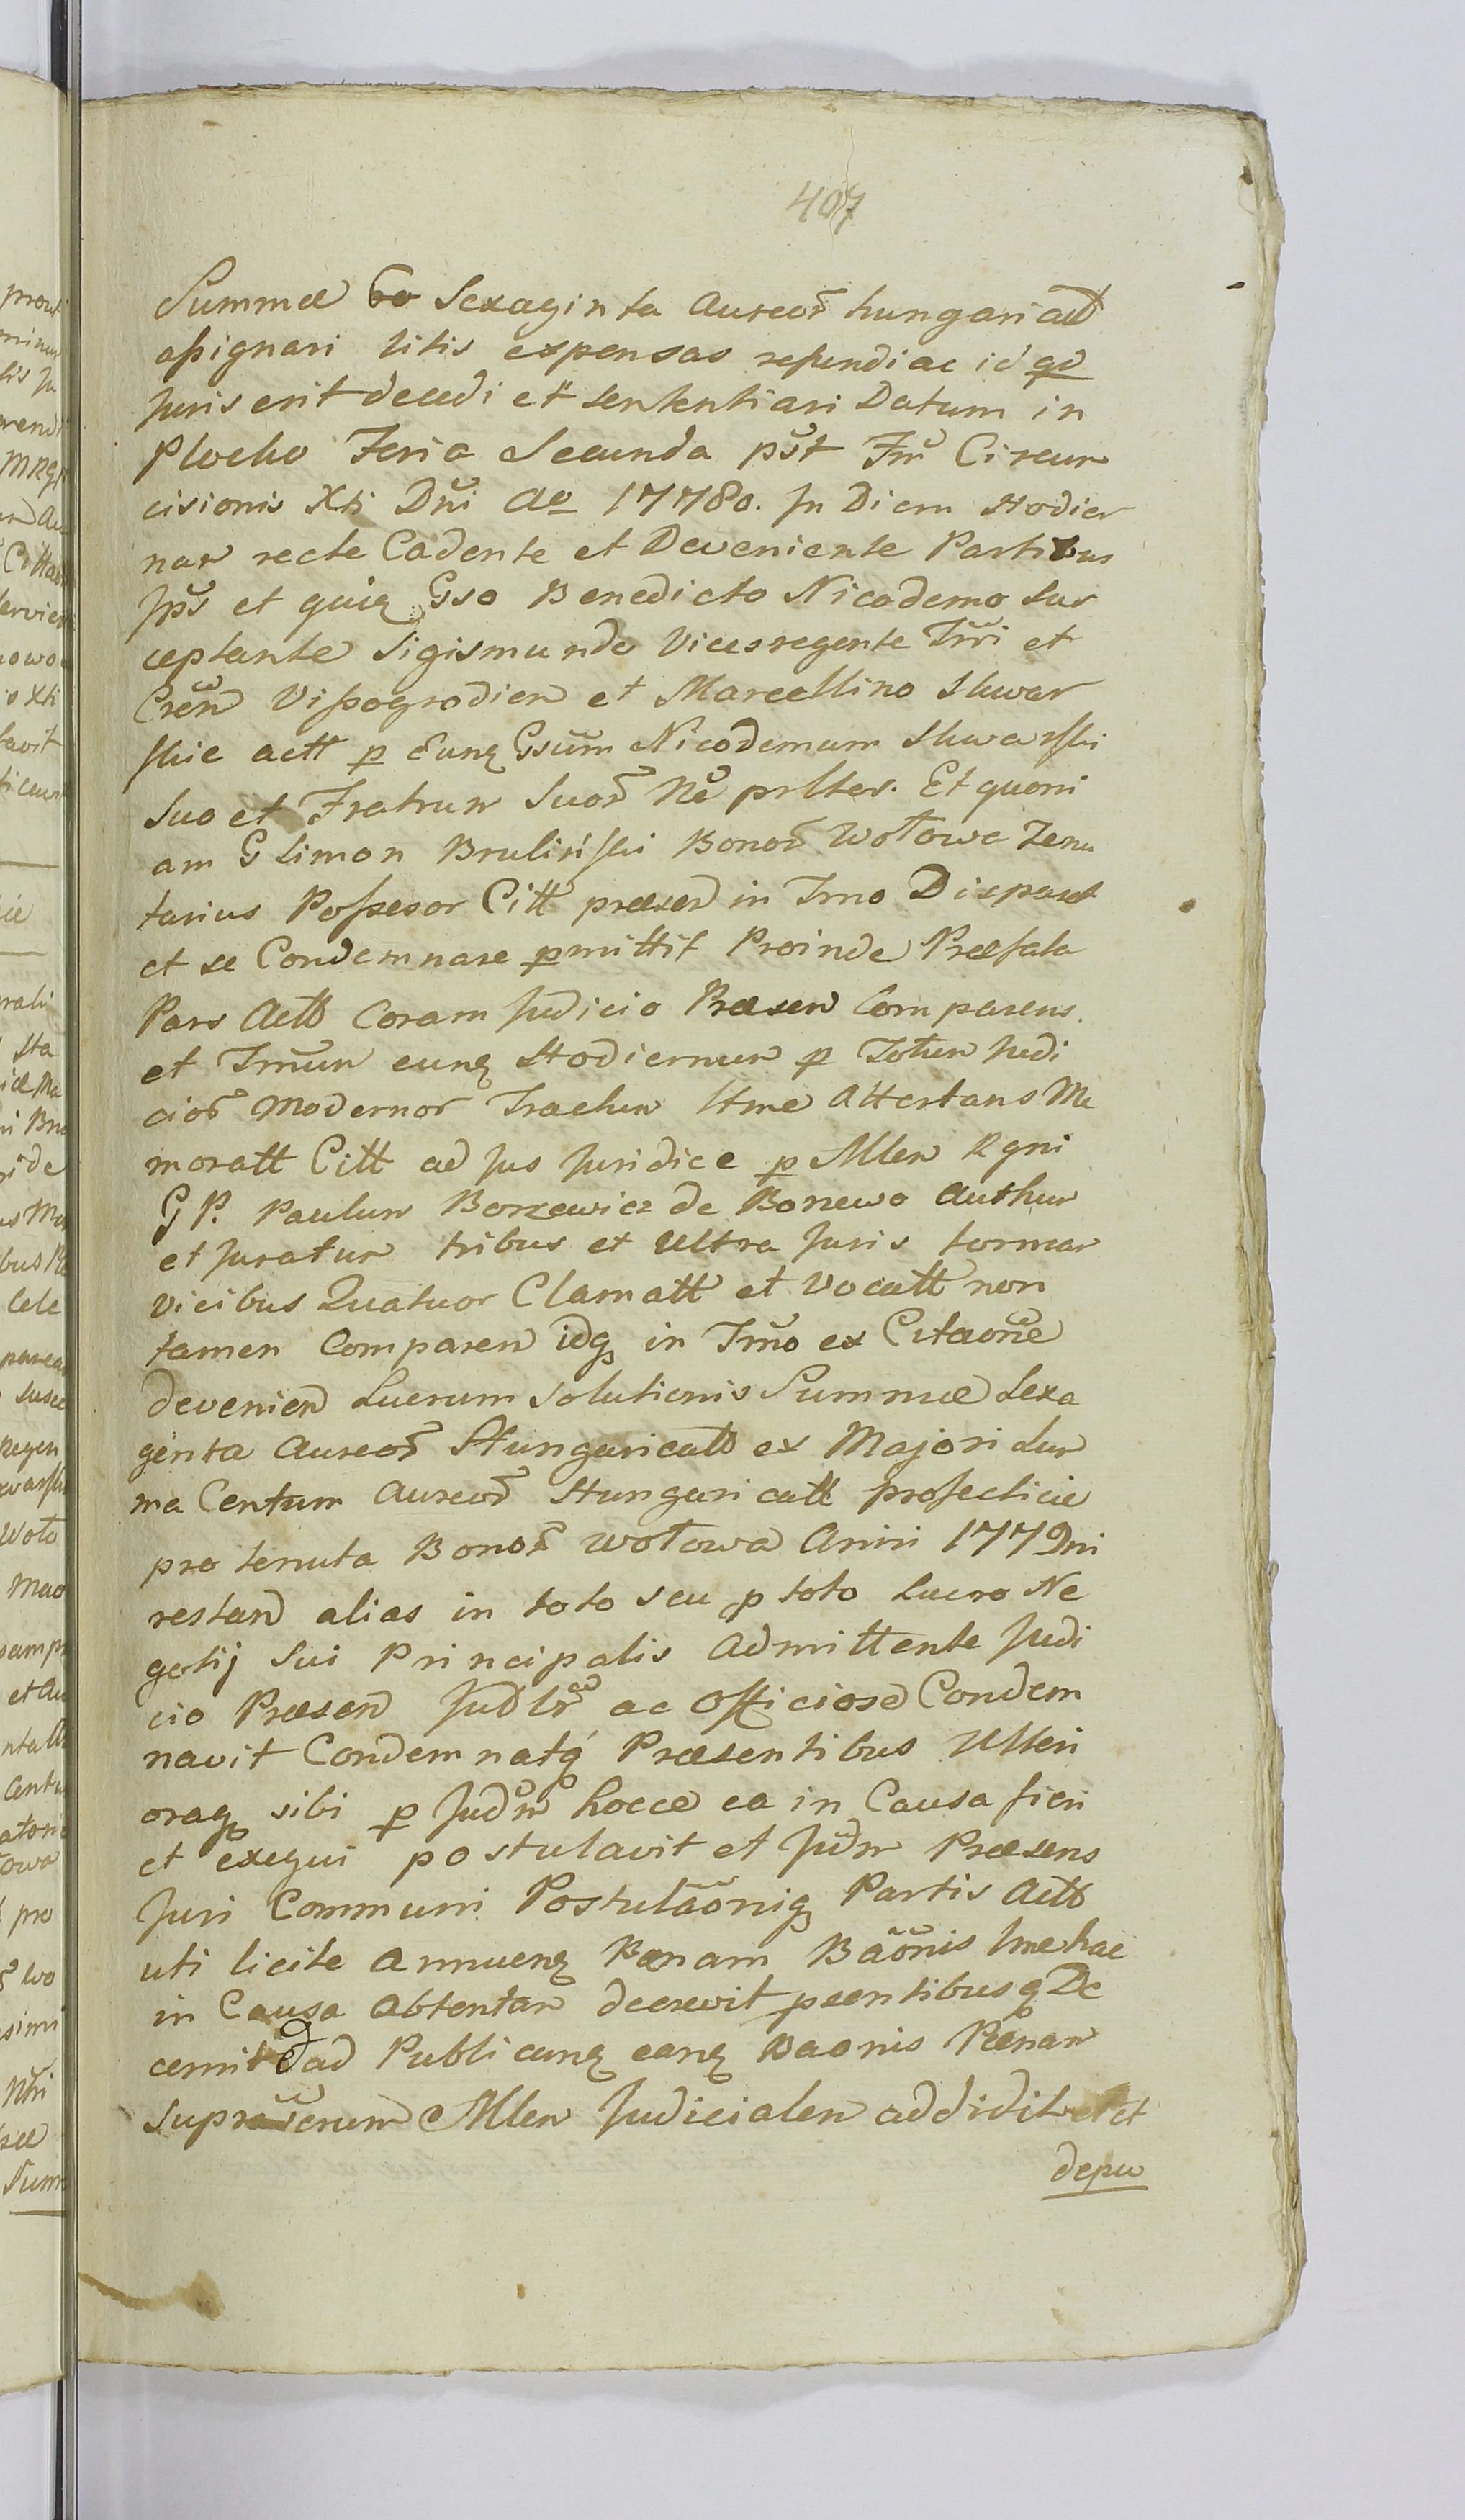 407
Summæ 60 Sexaginta Aureor̃ hungaricatt
assignari litis expensas refundi ac id qd
Juris erit decedi et sententiari Datum in
Plocko Feria Secunda pšt Fm̃ Circum
cisionis Xti Dñi Ao 17780. In Diem Hodier
nam recte Cadente et Deveniente Partibus
Ip̃s et quiq Gso Benedicto Nicodemo Sus
ceptante Sigismundo Vicesregente Trr̃i et
Cren̄ Vissogrodien et Marcellino Skwar
skie actt p Eunq Gsum̃ Nicodemum Skwarski
Suo et Fratrum Suor̃ Nẽ prlter. Et quoni
am G Simon Brulinski Bonor̃ Wołowa Tenu
tarius Possesor Citt præsen in Trno Disparet
et se Condemnare pmittit Proinde Præfata
Pars Actt Coram Judicio Præsen Comparens.
et Trm̃um eunq Hodiernum p Totum Judi
cior̃ Modernor̃ Tractum Itme Attentans Me
moratt Citt ad Jus Juridice p Mlem Rgni
G P. Paulum Borzewicz de Borzewo Authum
et Juratum tribus et Ultra Juris formam
vicibus Quatuor Clamatt et Vocatt non
tamen Comparen idq in Trm̃o ex Citaõne
devenien Lucrum Solutionis Summæ Sexa
ginta Aureor̃ Hungaricatt ex Majori Sum
ma Centum Aureor̃ Hungaricatt profecticie
pro tenuta Bonor̃ Wołowa Anni 1779ni
restan alias in toto seu p toto Lucro Ne
gotij Sui Principalis Admittente Judi
cio Præsen Judlr̃ ac Officiose Condem
navit Condemnatq Præsentibus Ulteri
oraq sibi p Judm̃ hocce ea in Causa fieri
et exequi postulavit et Judm̃ Præsens
Juri Communi Postulãõniq Partis Actt
uti licite Annuenq Pænam Bãõnis Ime hac
in Causa Obtentam decrevit psentibusq De
cernit ad Publicanq eanq Baonis Pænam
supraserum Mlem Judicialem addidit et
depu